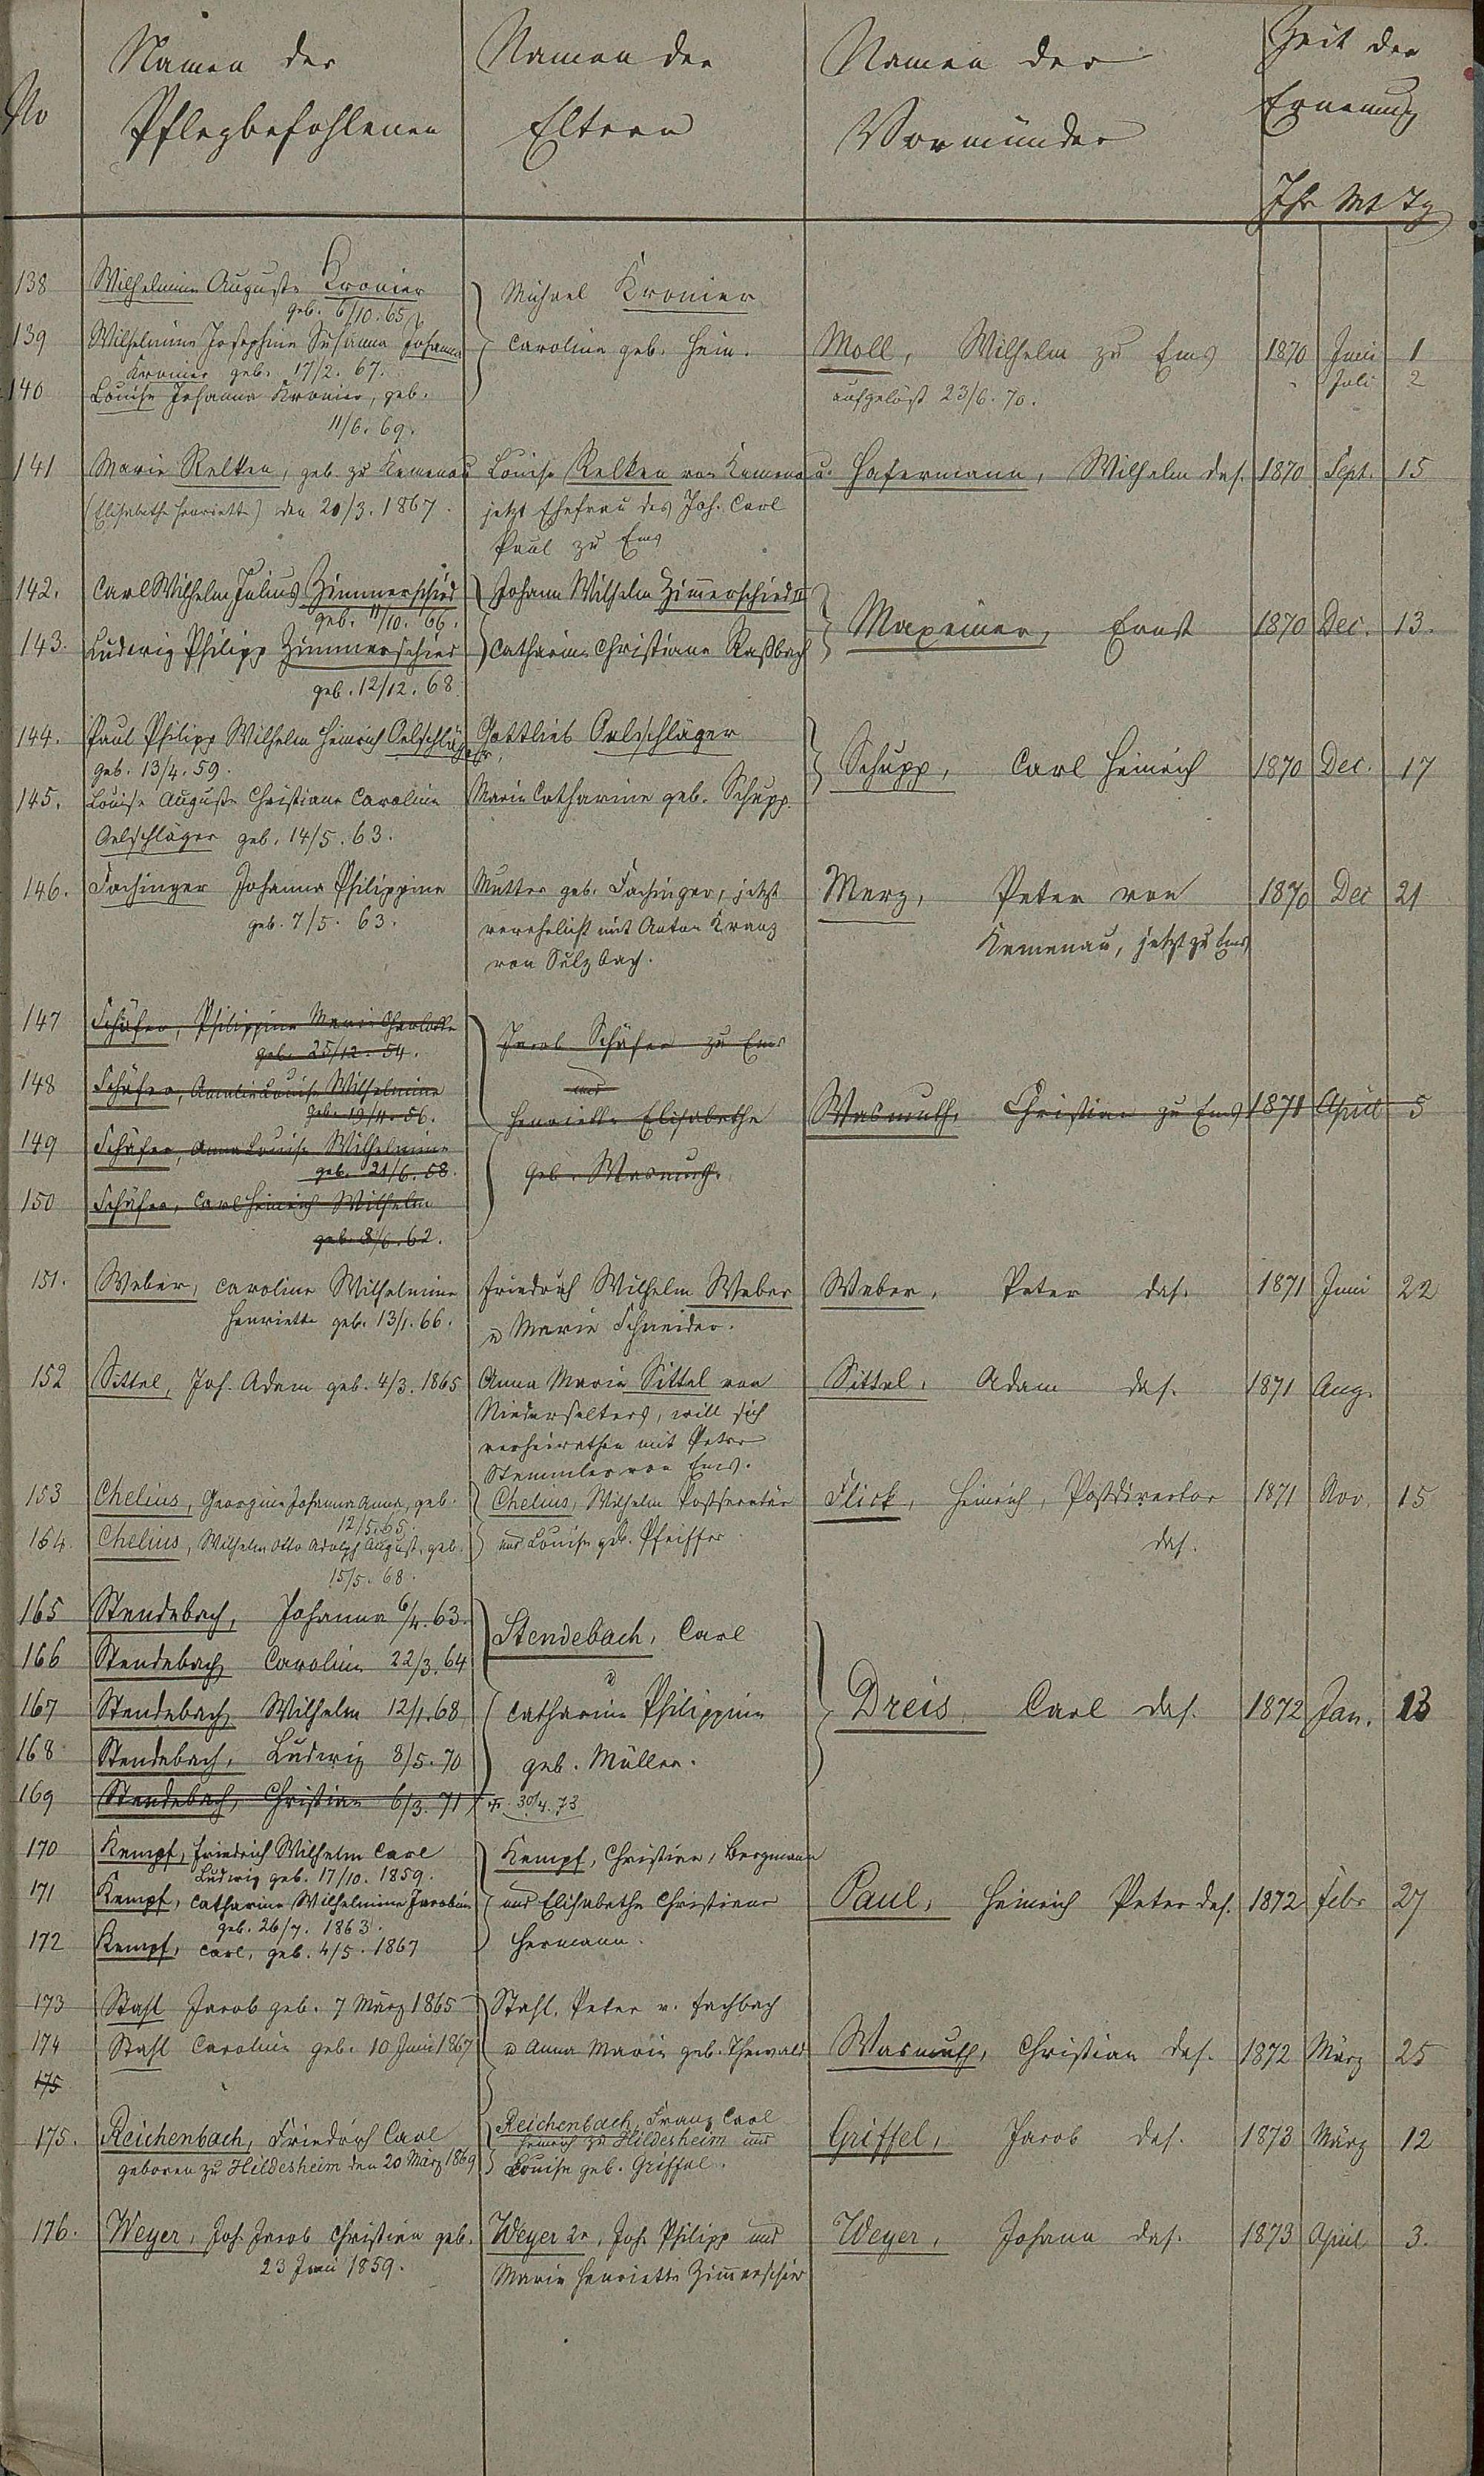 No
Namen der
Pflegbefohlenen
Namen der
Eltern
Namen der
Vormünder
Zeit der
Ernennung
Jhr Mt Tg
138 Wilhelmine Auguste Kronier
geb. 6/10. 65
139 Wilhelmine Josephine Susanna Johanna
Kronier geb. 17/2. 67.
140 Louise Johanna Kronier, geb.
11/6. 69.
Michael Kronier
Caroline geb. Hein.
Moll, Wilhelm zu Ems 1870 Juni 1
aufgelöst 23/6. 70. " Juli 2
141 Marie Relken, geb. zu Kemenau
(Elisabethe Henriette) den 20/3. 1867.
Louise Relken von Kemenau
jetzt Ehefrau des Joh. Carl
Paul zu Ems
Hafermann, Wilhelm das. 1870 Sept. 15
142. Carl Wilhelm Julius Zimmerschied
geb. 11/10. 66.
143. Ludwig Philipp Zimmerschied
geb. 12/12. 68.
Johann Wilhelm Zimmerschied II
Catharine Christiane Raßbach
Maxeiner, Ernst 1870 Dec. 13.
144. Paul Philipp Wilhelm Heinrich Oelschläger,
geb. 13/4. 59.
145. Louise Auguste Christiane Caroline
Oelschläger geb. 14/5. 63.
Gottlieb Oelschläger
Marie Catharine geb. Schupp.
Schupp, Carl Heinrich 1870 Dec. 17
146. Fachinger Johanna Philippine
geb. 7/5. 63.
Mutter geb. Fachinger, jetzt
verehelicht mit Anton Kranz
von Sulzbach.
Merz, Peter von 1870 Dec 21
Kemenau, jetzt zu Ems
147 Schäfer, Philippine Marie Charlotte
geb. 25/12. 54.
148 Schäfer, Amalie Louise Wilhelmine
geb. 19/11. 56.
149 Schäfer, Anna Louise Wilhelmine
geb. 21/6. 58.
150 Schäfer, Carl Heinrich Wilhelm
geb. 8/6. 62.
Jacob Schäfer zu Ems
und
Henriette Elisabethe
geb. Wasmuth.
Wasmuth, Christian zu Ems 1871 April 5
151. Weber, Caroline Wilhelmine
Henriette geb. 13/1. 66.
Friedrich Wilhelm Weber
u Marie Schneider.
Weber, Peter das. 1871 Juni 22
152 Sittel, Joh. Adam geb. 4/3. 1865
Anna Maria Sittel von
Niederselters, will sich
verheirathen mit Peter
Stemmler von Ems.
Sittel, Adam das. 1871 Aug.
153 Chelius, Georgine Johanna Anna, geb.
12/5. 65.
154. Chelius, Wilhelm Otto Adolph August, geb.
15/5. 68.
Chelius, Wilhelm Postsecretär
und Louise geb. Pfeiffer
Flick, Heinrich, Postdirector 1871 Nov. 15
das.
165 Stendebach, Johanna 6/4. 63.
166 Stendebach Caroline 22/3. 64
167 Stendebach, Wilhelm 12/1. 68
168 Stendebach, Ludwig 8/5. 70
169 Stendebach, Christian 6/3. 71 + 30/4. 73
Stendebach, Carl
u
Catharine Philippine
geb. Müller.
Dreis, Carl das. 1872 Jan. 13
170 Kempf, Friedrich Wilhelm Carl
Ludwig geb. 17/10. 1859.
171 Kempf, Catharine Wilhelmine Jacobine
geb. 26/7. 1863.
172 Kempf, Carl, geb. 4/5. 1867
Kempf, Christian, Bergmann
und Elisabethe Christiane
Hermann.
Paul, Heinrich Peter das. 1872 Febr 27
173 Stahl Jacob geb. 7 März 1865
174 Stahl Caroline geb. 10 Juni 1867
175
Stahl, Peter v. Fachbach
u Anna Maria geb. Thewald
Wasmuth, Christian das. 1872 März 25
175. Reichenbach, Friedrich Carl
geboren zu Hildesheim den 20 März 1869
Reichenbach, Franz Carl
Heinrich zu Hildesheim und
Louise geb. Griffel.
Griffel, Jacob das. 1873 März 12
176. Weyer, Joh. Jacob Christian geb.
23 Juni 1859.
Weyer 2r, Joh. Philipp und
Marie Henriette Zimmerschied
Weyer, Johann das. 1873 April 3.